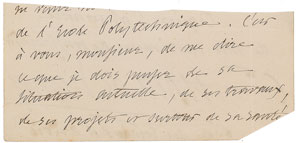 de l'Ecole Polytechnique. C'est
à vous, monsieur, de me dire
ce que je dois juger de sa
situation actuelle, de ses travaux,
de ses projets et surtout de sa santé